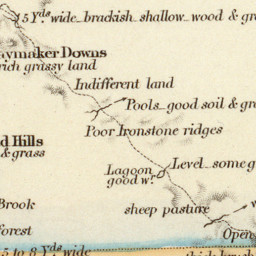 15 Yds wide brackish shallow wood & gr
aymaker Downs
rich grassy land
Indifferent land
Pools good soil & gr
Poor Ironstone ridges
d Hills
& grass
Level some g
Lagoon
good wr.
Brook
sheep pasture
forest
Open
5 to 8 Yds wide
thick brush